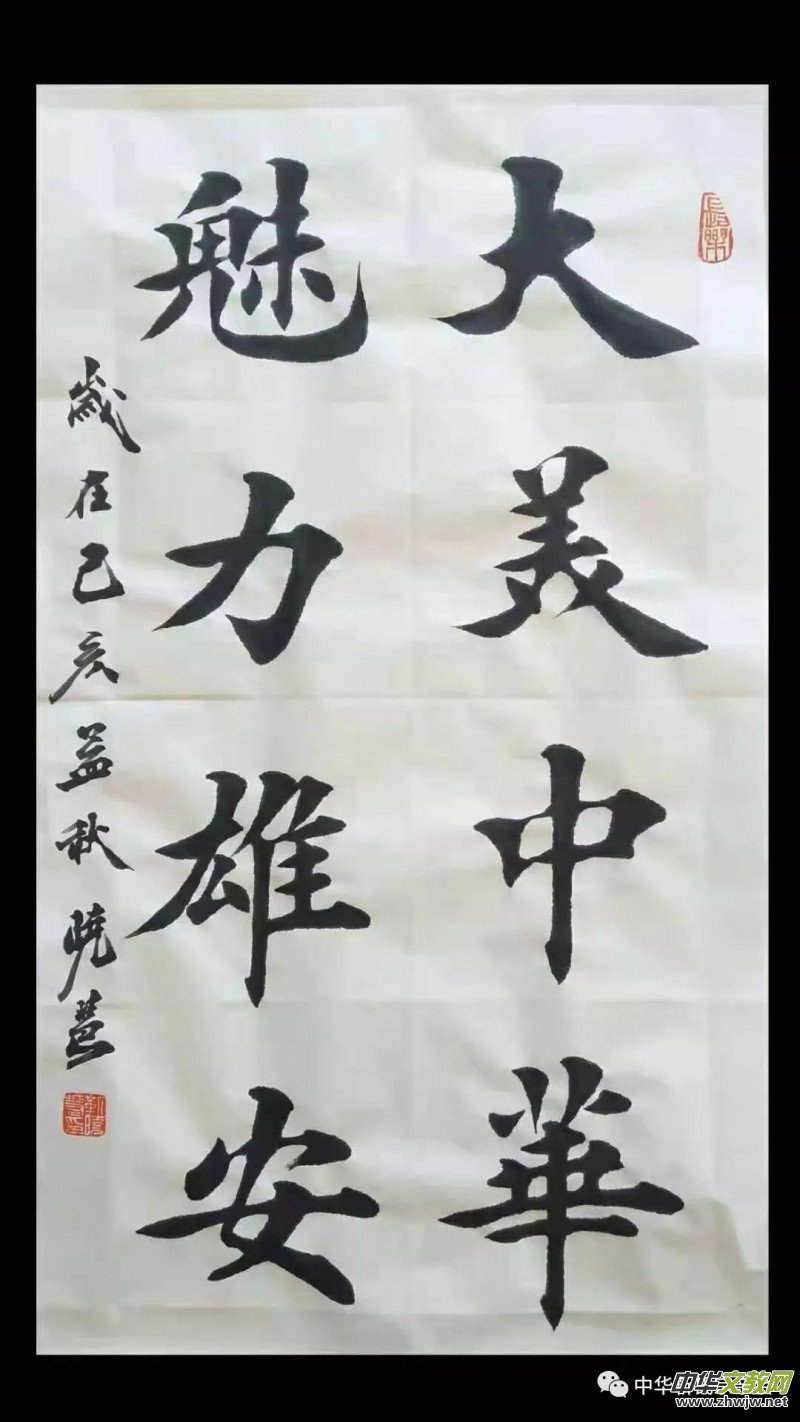 大美中華
魅力雄安
歲在己亥益秋曉慧
長樂
中华文教网
www.zhwjw.net